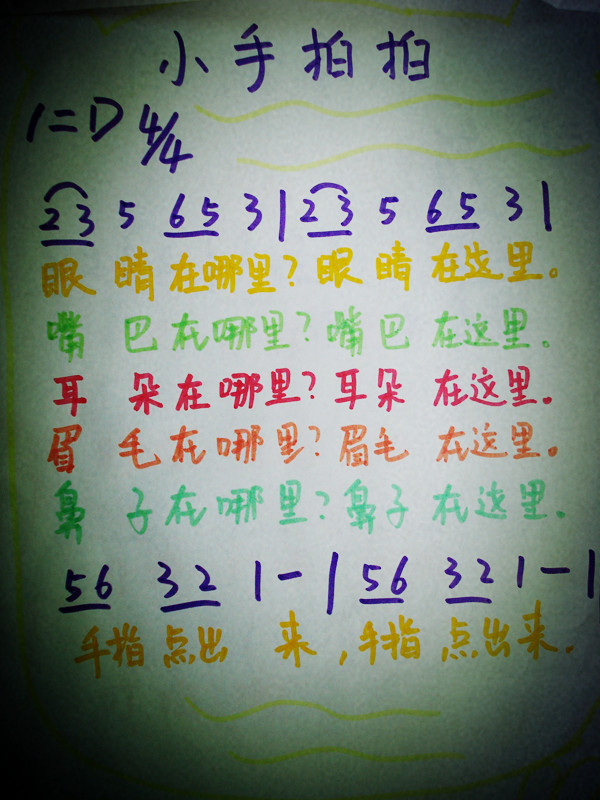 小手拍拍
1=D 4/4
2 3 5 6 5 3 | 2 3 5 6 5 3 |
眼睛在哪里?眼睛在这里。
嘴巴在哪里?嘴巴在这里.
耳朵在哪里?耳朵在这里.
眉毛在哪里?眉毛在这里.
鼻子在哪里?鼻子在这里.
5 6 3 2 1 - | 5 6 3 2 1 - |
手指点出来,手指点出来.